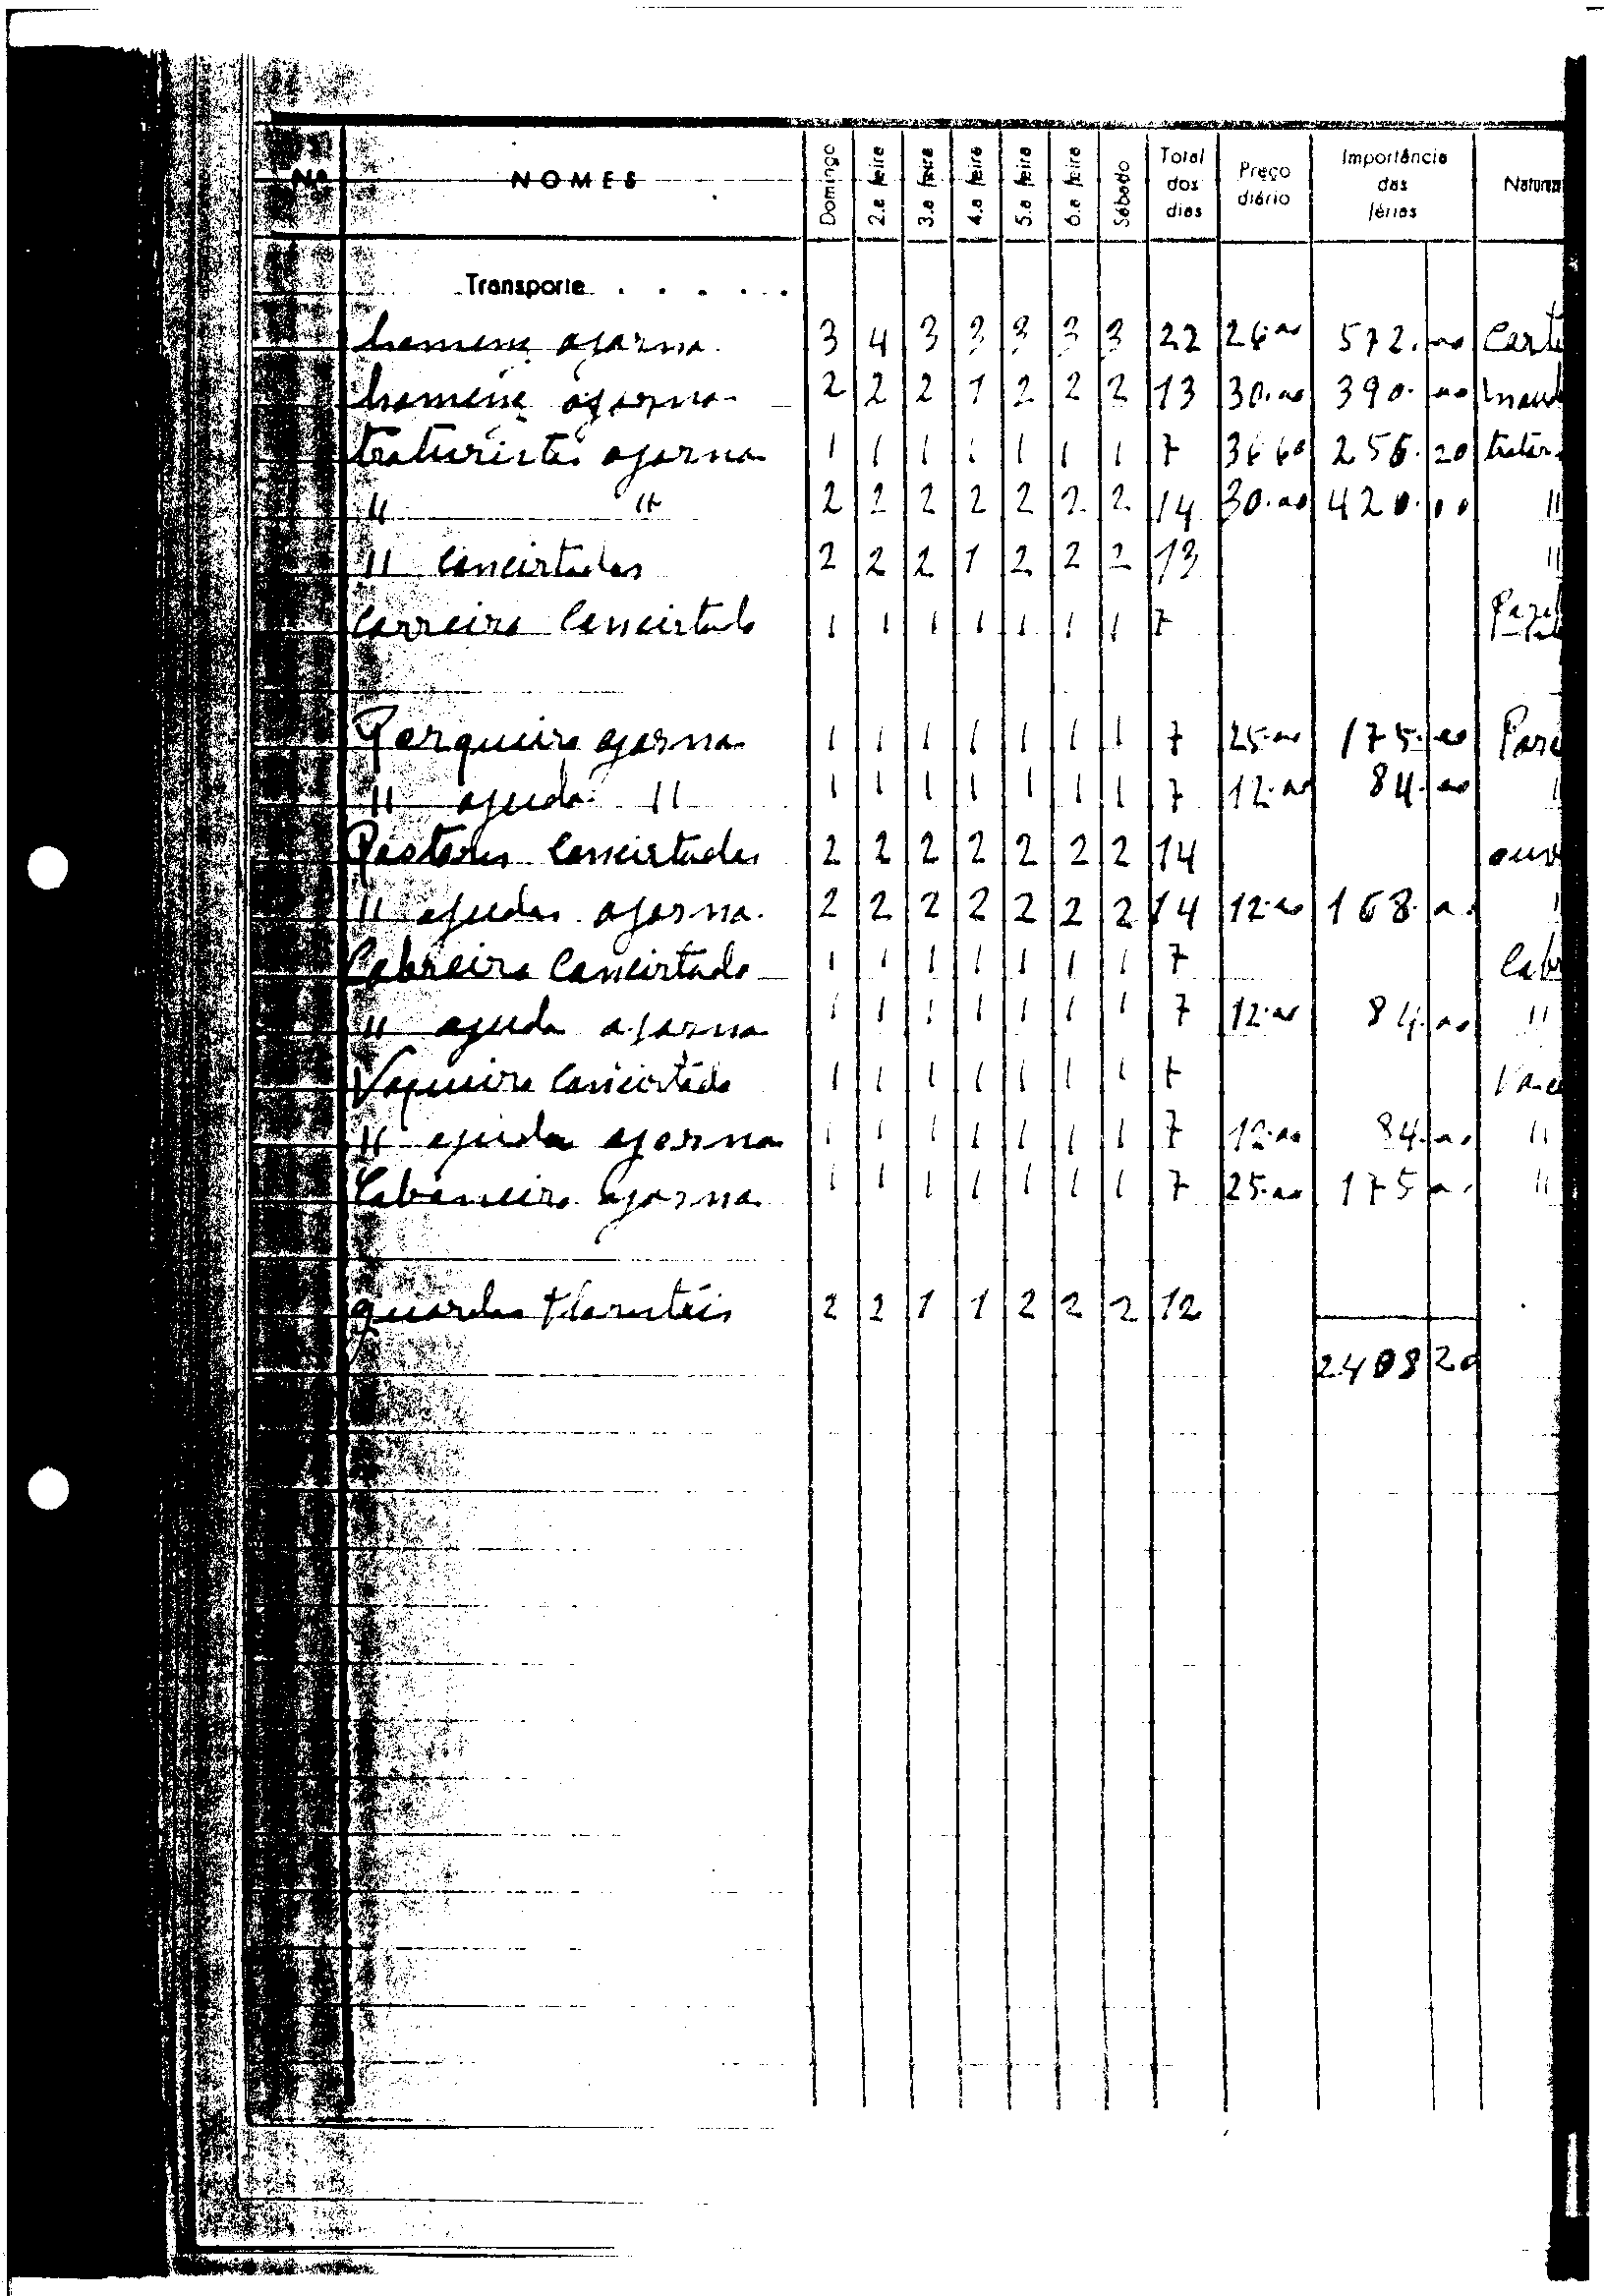 Nº NOMES Domingo 2.a feira 3.a feira 4.a feira 5.a feira 6.a feira Sábado Total dos dias Preço diário Importância das férias Natureza
Transporte . . . . .
homens ajorna 3 4 3 3 3 3 3 22 26.00 572.00
homens ajorna 2 2 2 1 2 2 2 13 30.00 390.00
traturistas ajorna 1 1 1 1 1 1 1 7 36 60 256.20 trator
" " 2 2 2 2 2 2 2 14 30.00 420.00 "
" Concirtados 2 2 2 1 2 2 2 13 "
Carreiro Concirtado 1 1 1 1 1 1 1 7
Porqueiro ajorna 1 1 1 1 1 1 1 7 25.00 175.00
" ajuda " 1 1 1 1 1 1 1 7 12.00 84.00
Pastores Concirtados 2 2 2 2 2 2 2 14
" ajudas ajorna 2 2 2 2 2 2 2 14 12.00 168.00
Cabreiro Concirtado 1 1 1 1 1 1 1 7
" ajuda ajorna 1 1 1 1 1 1 1 7 12.00 84.00 "
Vaqueiro Concirtado 1 1 1 1 1 1 1 7
" ajuda ajorna 1 1 1 1 1 1 1 7 12.00 84.00 "
Cabaneiro ajorna 1 1 1 1 1 1 1 7 25.00 175.00 "
guardas 2 2 1 1 2 2 2 12
2408 20